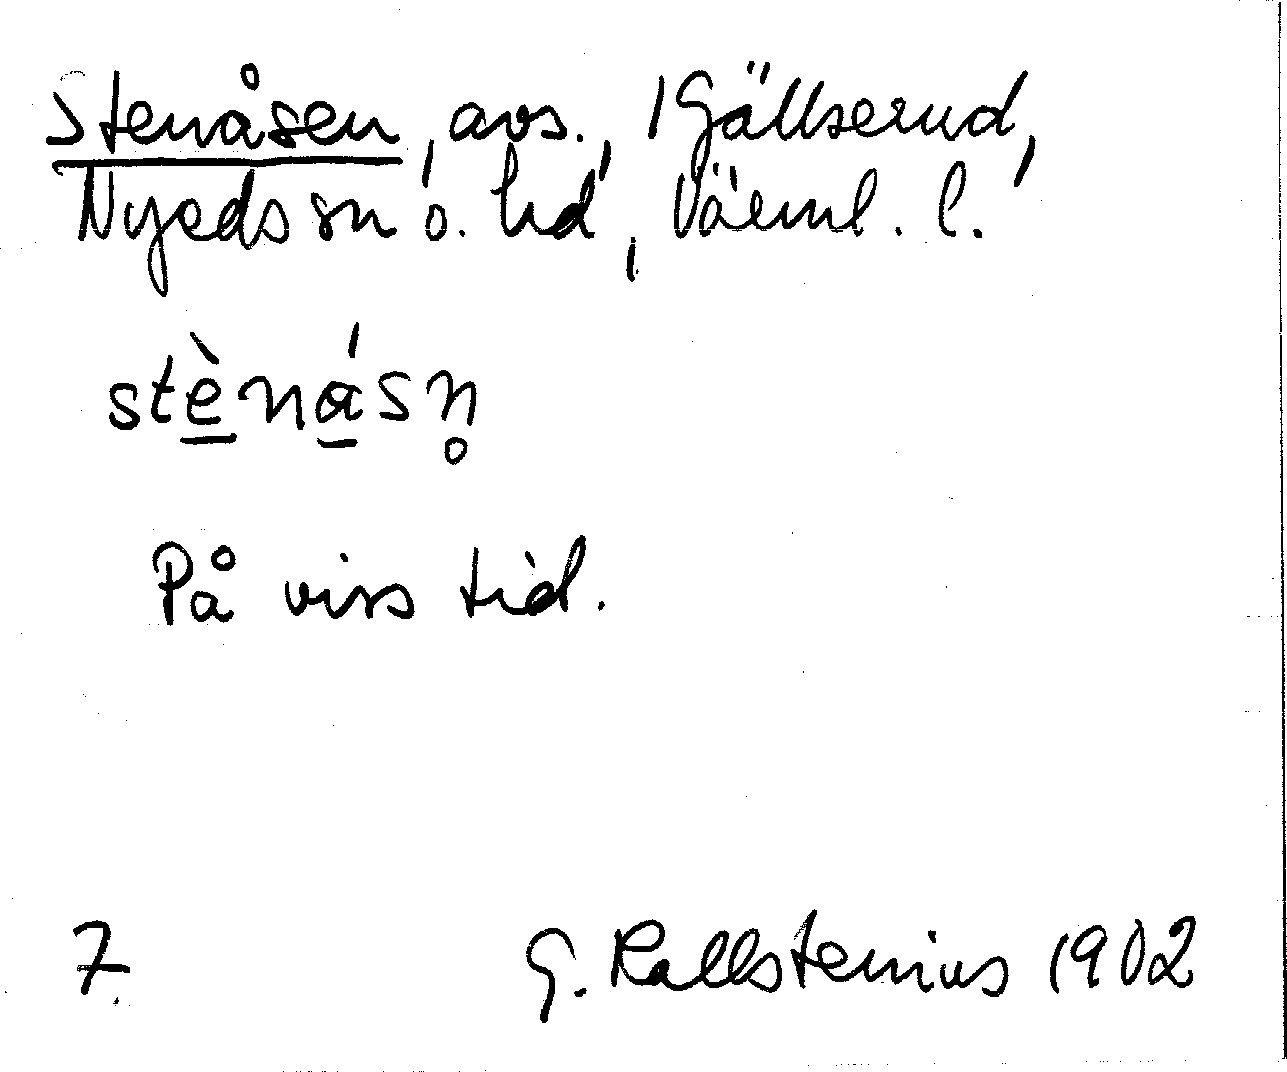 Stenåsen, avs., 1 Gällserud,
Nyeds sn o. hd, Värml. l.
stè̱ná̱sn̥
På viss tid.
7. G. Kallstenius 1902